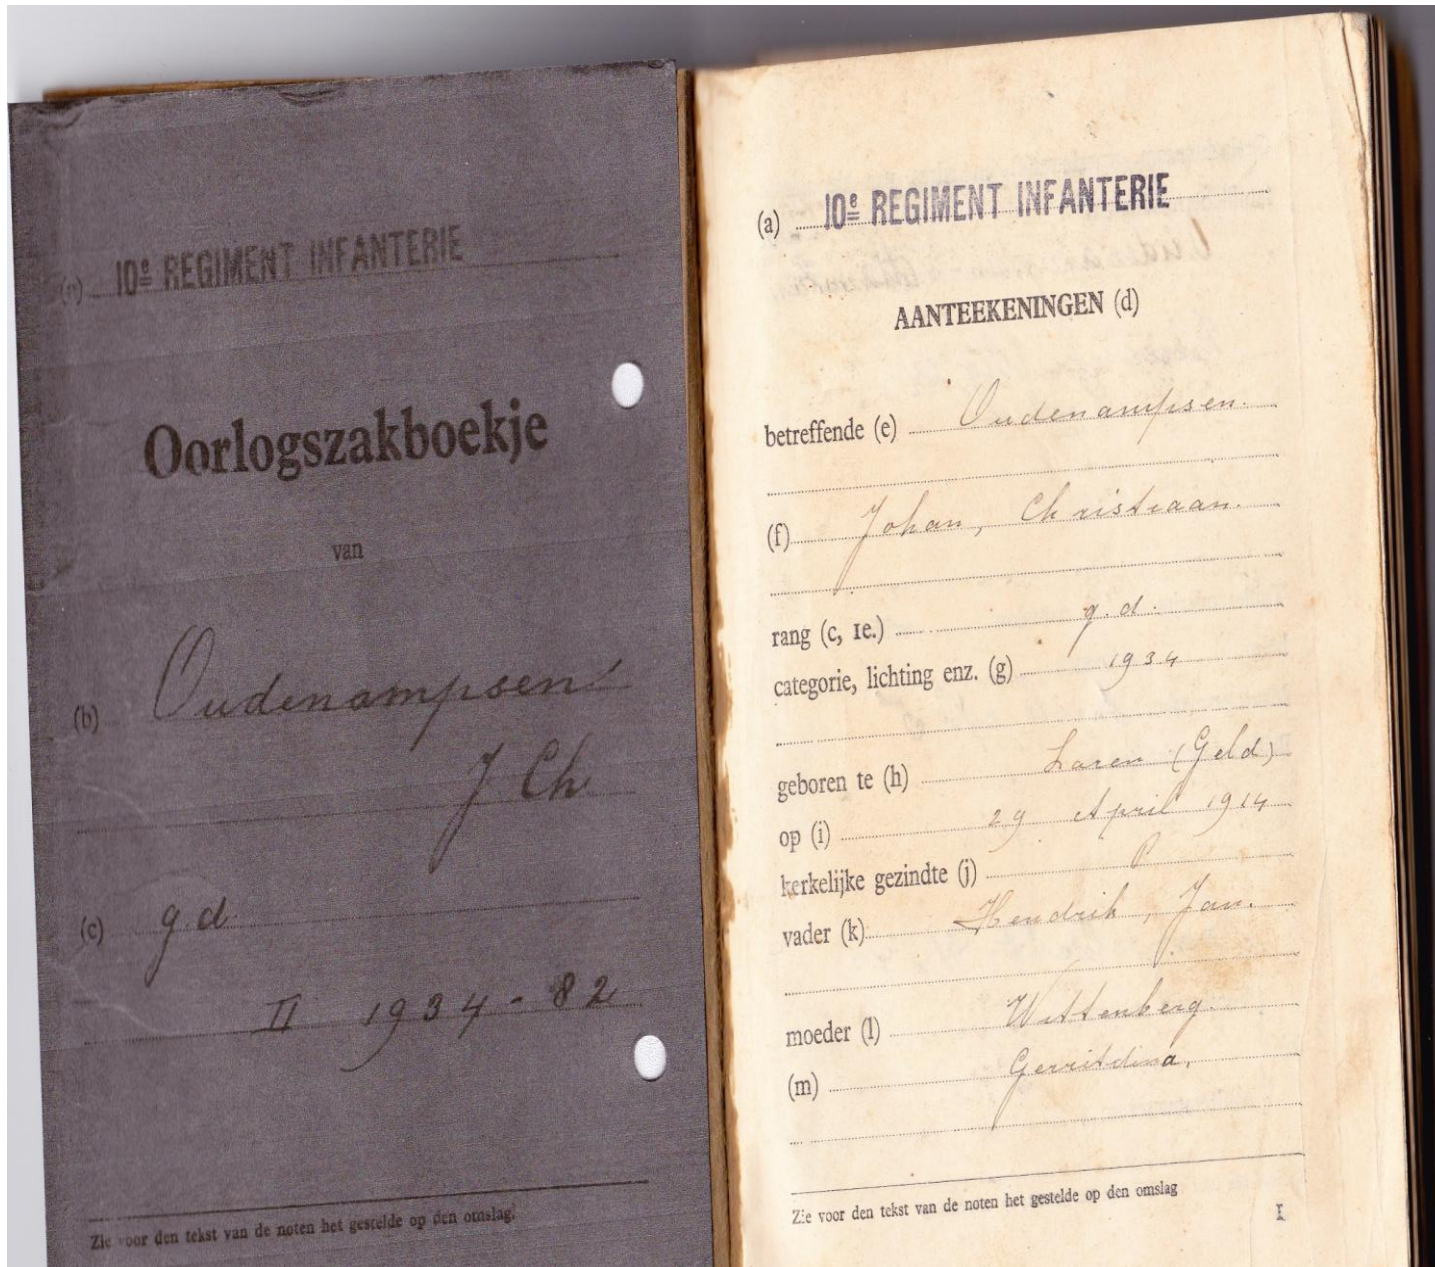 (a) 10e REGIMENT INFANTERIE
Oorlogszakboekje
van
(b) Oudenampsen
J Ch
(c) g.d
II 1934-82
Zie voor den tekst van de noten het gestelde op den omslag.
(a) 10e REGIMENT INFANTERIE
AANTEEKENINGEN (d)
betreffende (e) Oudenampsen.
(f) Johan, Christiaan.
rang (c, 1e.) g.d.
categorie, lichting enz. (g) 1934
geboren te (h) Laren (Geld)
op (i) 29 April 1914
kerkelijke gezindte (j) P
vader (k) Hendrik, Jan.
moeder (l) Wittenberg.
(m) Gerritdina,
Zie voor den tekst van de noten het gestelde op den omslag
I